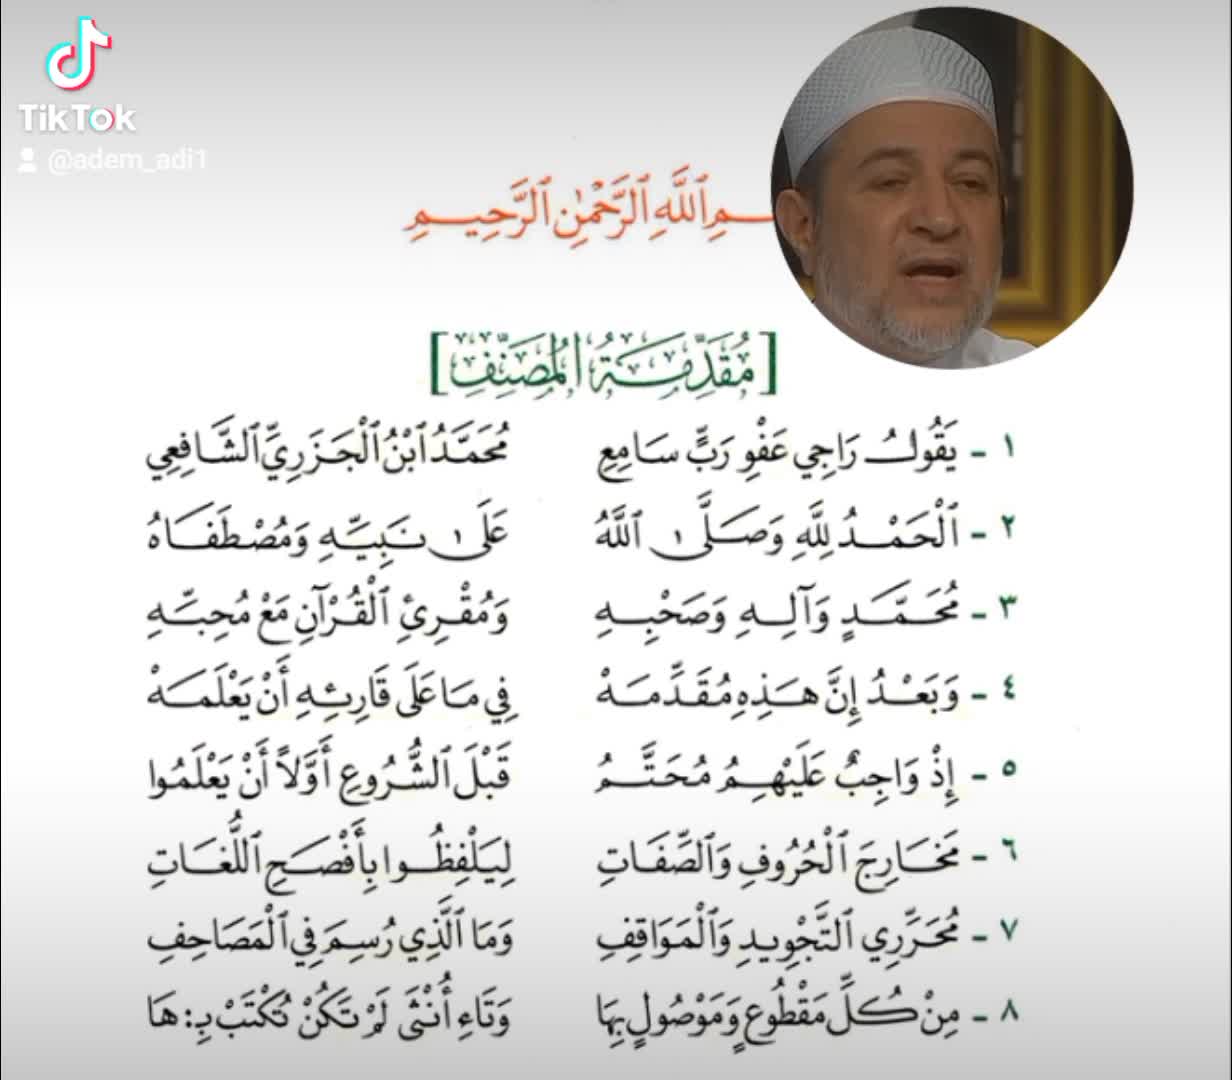 TikTok
@adem_adi1
ـمِ ٱللَّهِ ٱلرَّحْمَٰنِ ٱلرَّحِيمِ
[مُقَدِّمَةُ الْمُصَنِّفِ]
١ - يَقُولُ رَاجِي عَفْوِ رَبٍّ سَامِعِ مُحَمَّدُ ٱبْنُ ٱلْجَزَرِيِّ ٱلشَّافِعِي
٢ - ٱلْحَمْدُ لِلَّهِ وَصَلَّى ٱللَّهُ عَلَى نَبِيِّهِ وَمُصْطَفَاهُ
٣ - مُحَمَّدٍ وَآلِهِ وَصَحْبِهِ وَمُقْرِئِ ٱلْقُرْآنِ مَعْ مُحِبِّهِ
٤ - وَبَعْدُ إِنَّ هَذِهِ مُقَدِّمَهْ فِي مَا عَلَى قَارِئِهِ أَنْ يَعْلَمَهْ
٥ - إِذْ وَاجِبٌ عَلَيْهِمُ مُحَتَّمُ قَبْلَ ٱلشُّرُوعِ أَوَّلاً أَنْ يَعْلَمُوا
٦ - مَخَارِجَ ٱلْحُرُوفِ وَٱلصِّفَاتِ لِيَلْفِظُوا بِأَفْصَحِ ٱللُّغَاتِ
٧ - مُحَرِّرِي ٱلتَّجْوِيدِ وَٱلْمَوَاقِفِ وَمَا ٱلَّذِي رُسِمَ فِي ٱلْمَصَاحِفِ
٨ - مِنْ كُلِّ مَقْطُوعٍ وَمَوْصُولٍ بِهَا وَتَاءِ أُنْثَى لَمْ تَكُنْ تُكْتَبْ بِـ: هَا